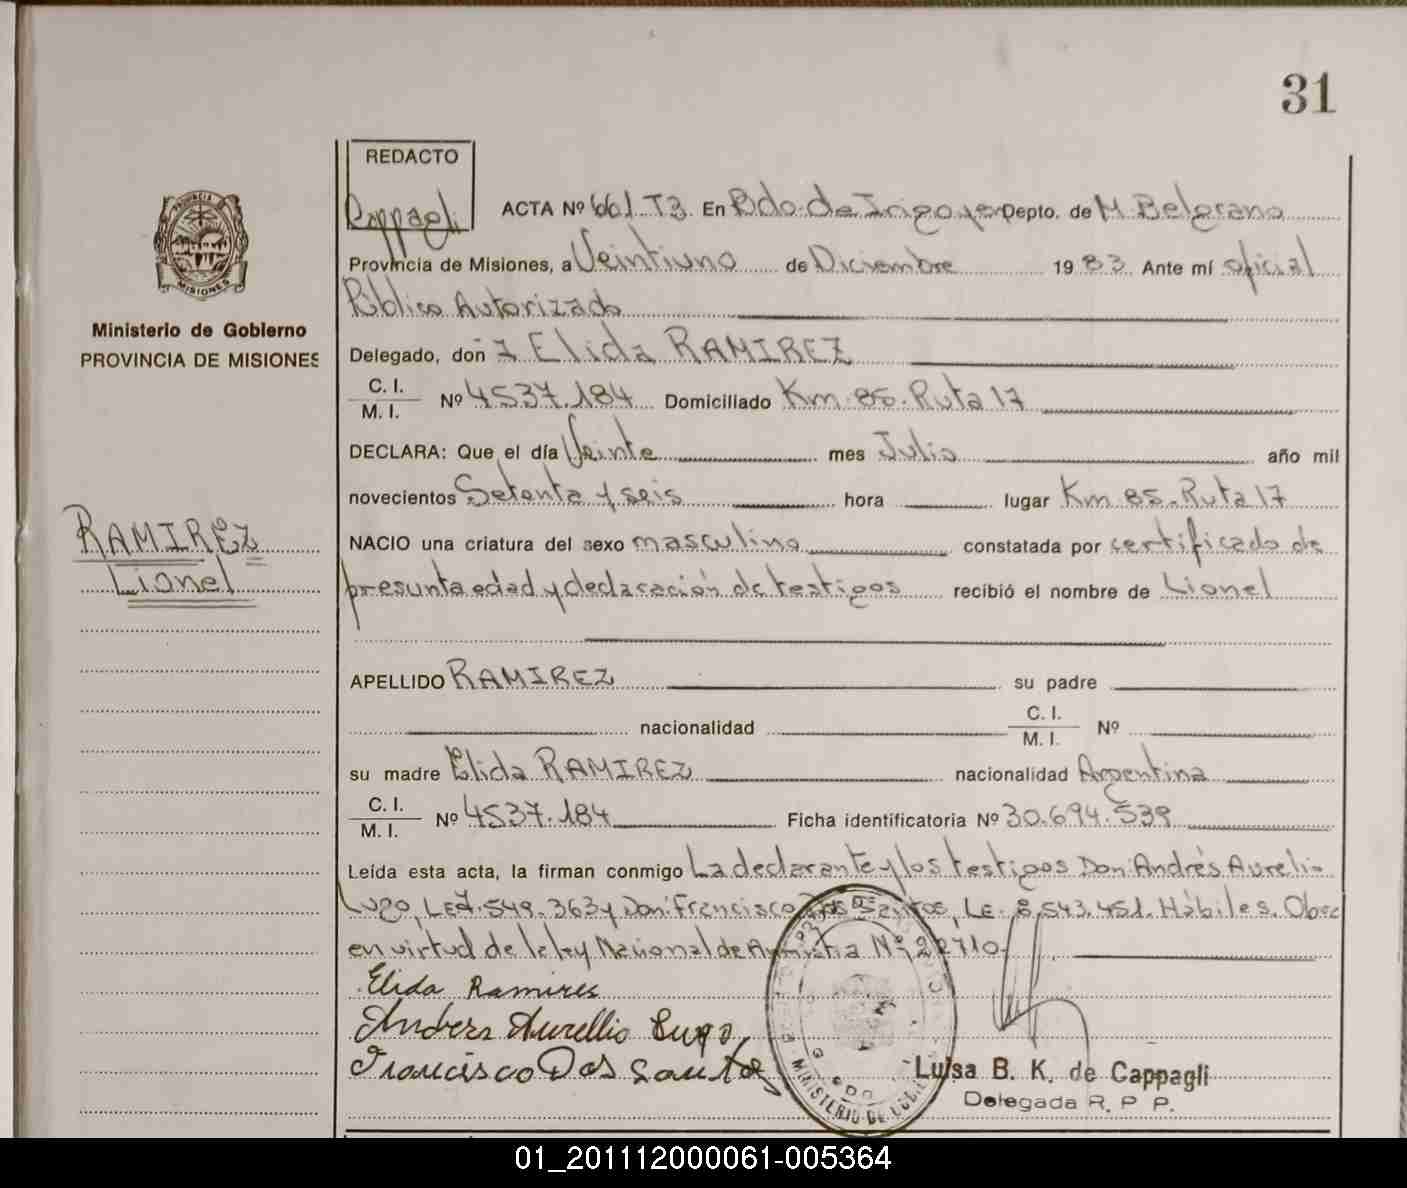 31
REDACTO
Cappagli
ACTA Nº 661 T3. En Bdo. de Irigoyen Depto. de M. Belgrano
Provincia de Misiones, a Veintiuno de Diciembre 1983. Ante mí oficial
Público Autorizado
Ministerio de Gobierno
PROVINCIA DE MISIONES
Delegado, don ª Elida RAMIREZ
C. I.
M. I. Nº 4537.184 Domiciliado Km. 85. Ruta 17
DECLARA: Que el día Veinte mes Julio año mil
novecientos Setenta y seis hora lugar Km. 85. Ruta 17
RAMIREZ
Lionel
NACIO una criatura del sexo masculino constatada por certificado de
presunta edad y declaración de testigos recibió el nombre de Lionel
APELLIDO RAMIREZ su padre
nacionalidad C. I.
M. I. Nº
su madre Elida RAMIREZ nacionalidad Argentina
C. I.
M. I. Nº 4537.184 Ficha identificatoria Nº 30.694.539
Leída esta acta, la firman conmigo La declarante y los testigos Don: Andrés Aurelio
Lugo, LE 7.549.363 y Don: Francisco Dos Santos, LE. 8.543.451. Hábiles. Obre
en virtud de la ley Nacional de Amnistia Nº 22710.
Elida Ramires
Anders Aurellio Lugo
Francisco Dos Santos
MINISTERIO DE GOBIERNO
Luisa B. K. de Cappagli
Delegada R. P. P.
01_201112000061-005364